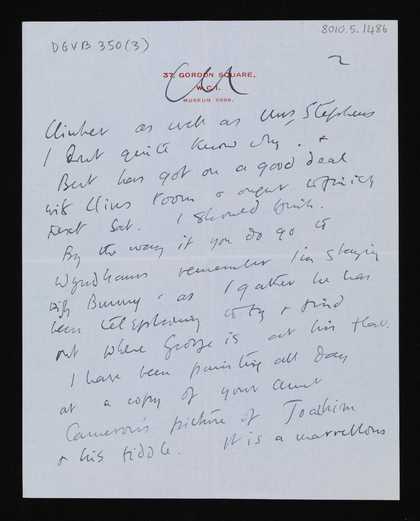 DGVB 350(3)
8010.5.1486
2
37, GORDON SQUARE,
W.C.1.
MUSEUM
as well as Mrs Stephens
I dont quite know why. &
Bert has got on a good deal
with Clives room & ought to finish
next Sat. I should think.
By the way if you do go to
Wyndhams remember I'm staying
with Bunny & as I gather he has
been telephoning to try & find
out where George is at his flat.
I have been painting all day
at a copy of your Aunt
Cameron's picture of Joachim
& his fiddle. It is a marvellous